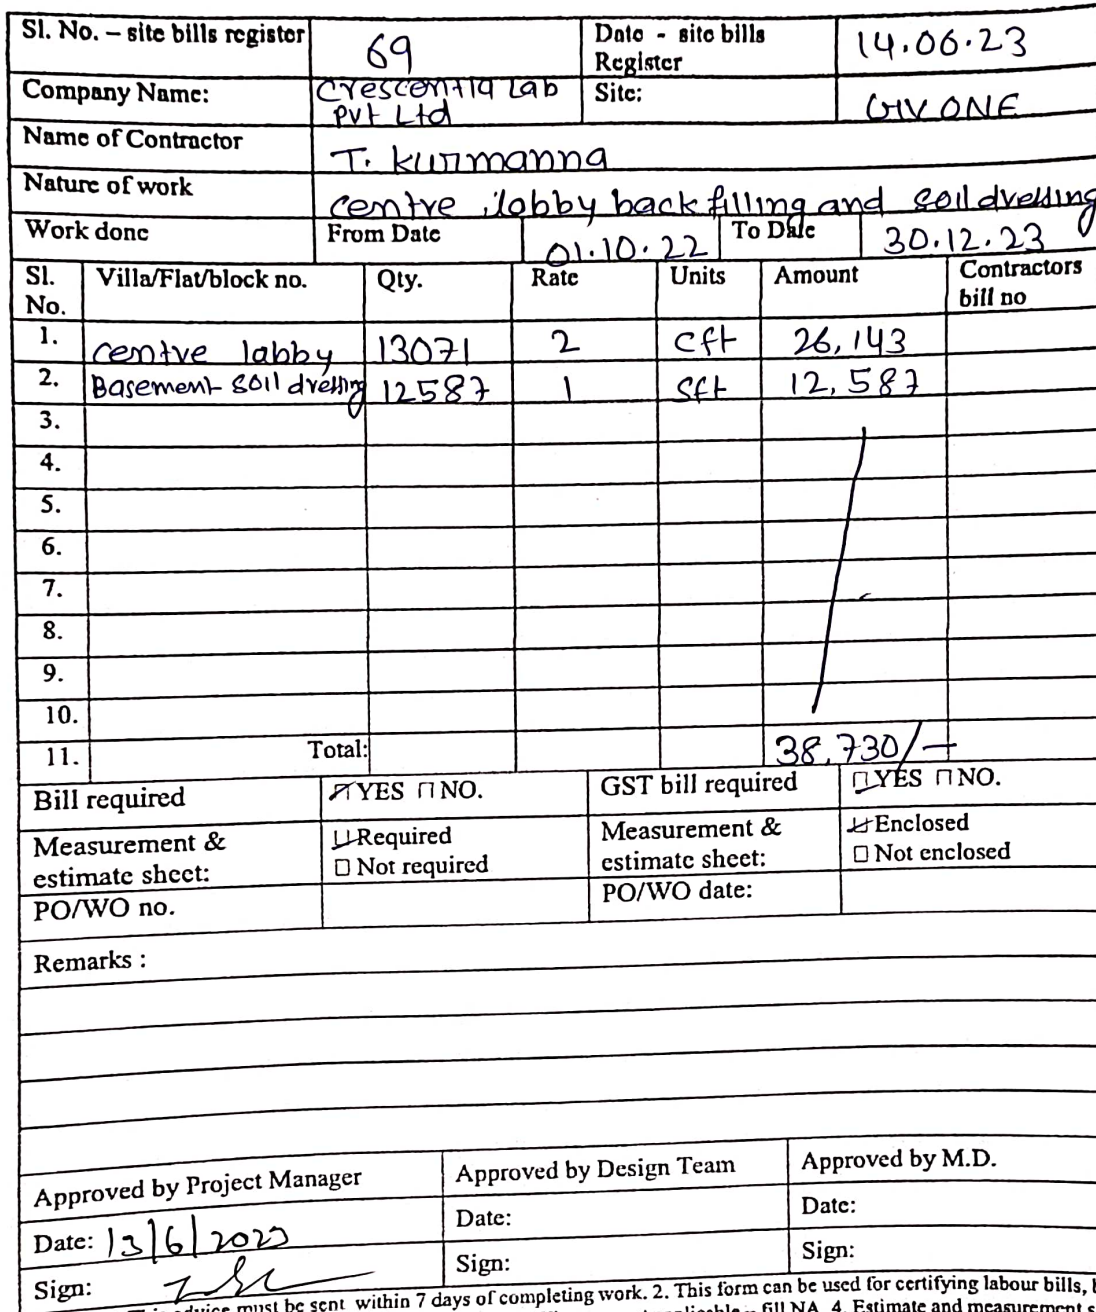 Sl. No. – site bills register 69 Date - site bills Register 14.06.23
Company Name: Crescentia Lab Pvt Ltd Site: GV ONE
Name of Contractor T. Kurmanna
Nature of work centre lobby back filling and soil dressing
Work done From Date 01.10.22 To Date 30.12.23
Sl. No. Villa/Flat/block no. Qty. Rate Units Amount Contractors bill no
1. centre labby 13071 2 cft 26,143
2. Basement soil dressing 12587 1 sft 12,587
3.
4.
5.
6.
7.
8.
9.
10.
11. Total: 38,730/-
Bill required YES NO. GST bill required YES NO.
Measurement & estimate sheet: Required Not required Measurement & estimate sheet: Enclosed Not enclosed
PO/WO no. PO/WO date:
Remarks :
Approved by Project Manager Approved by Design Team Approved by M.D.
Date: 13/6/2023 Date: Date:
Sign: Sign: Sign:
must be sent within 7 days of completing work. 2. This form can be used for certifying labour bills,
fill NA 4. Estimate and measurement